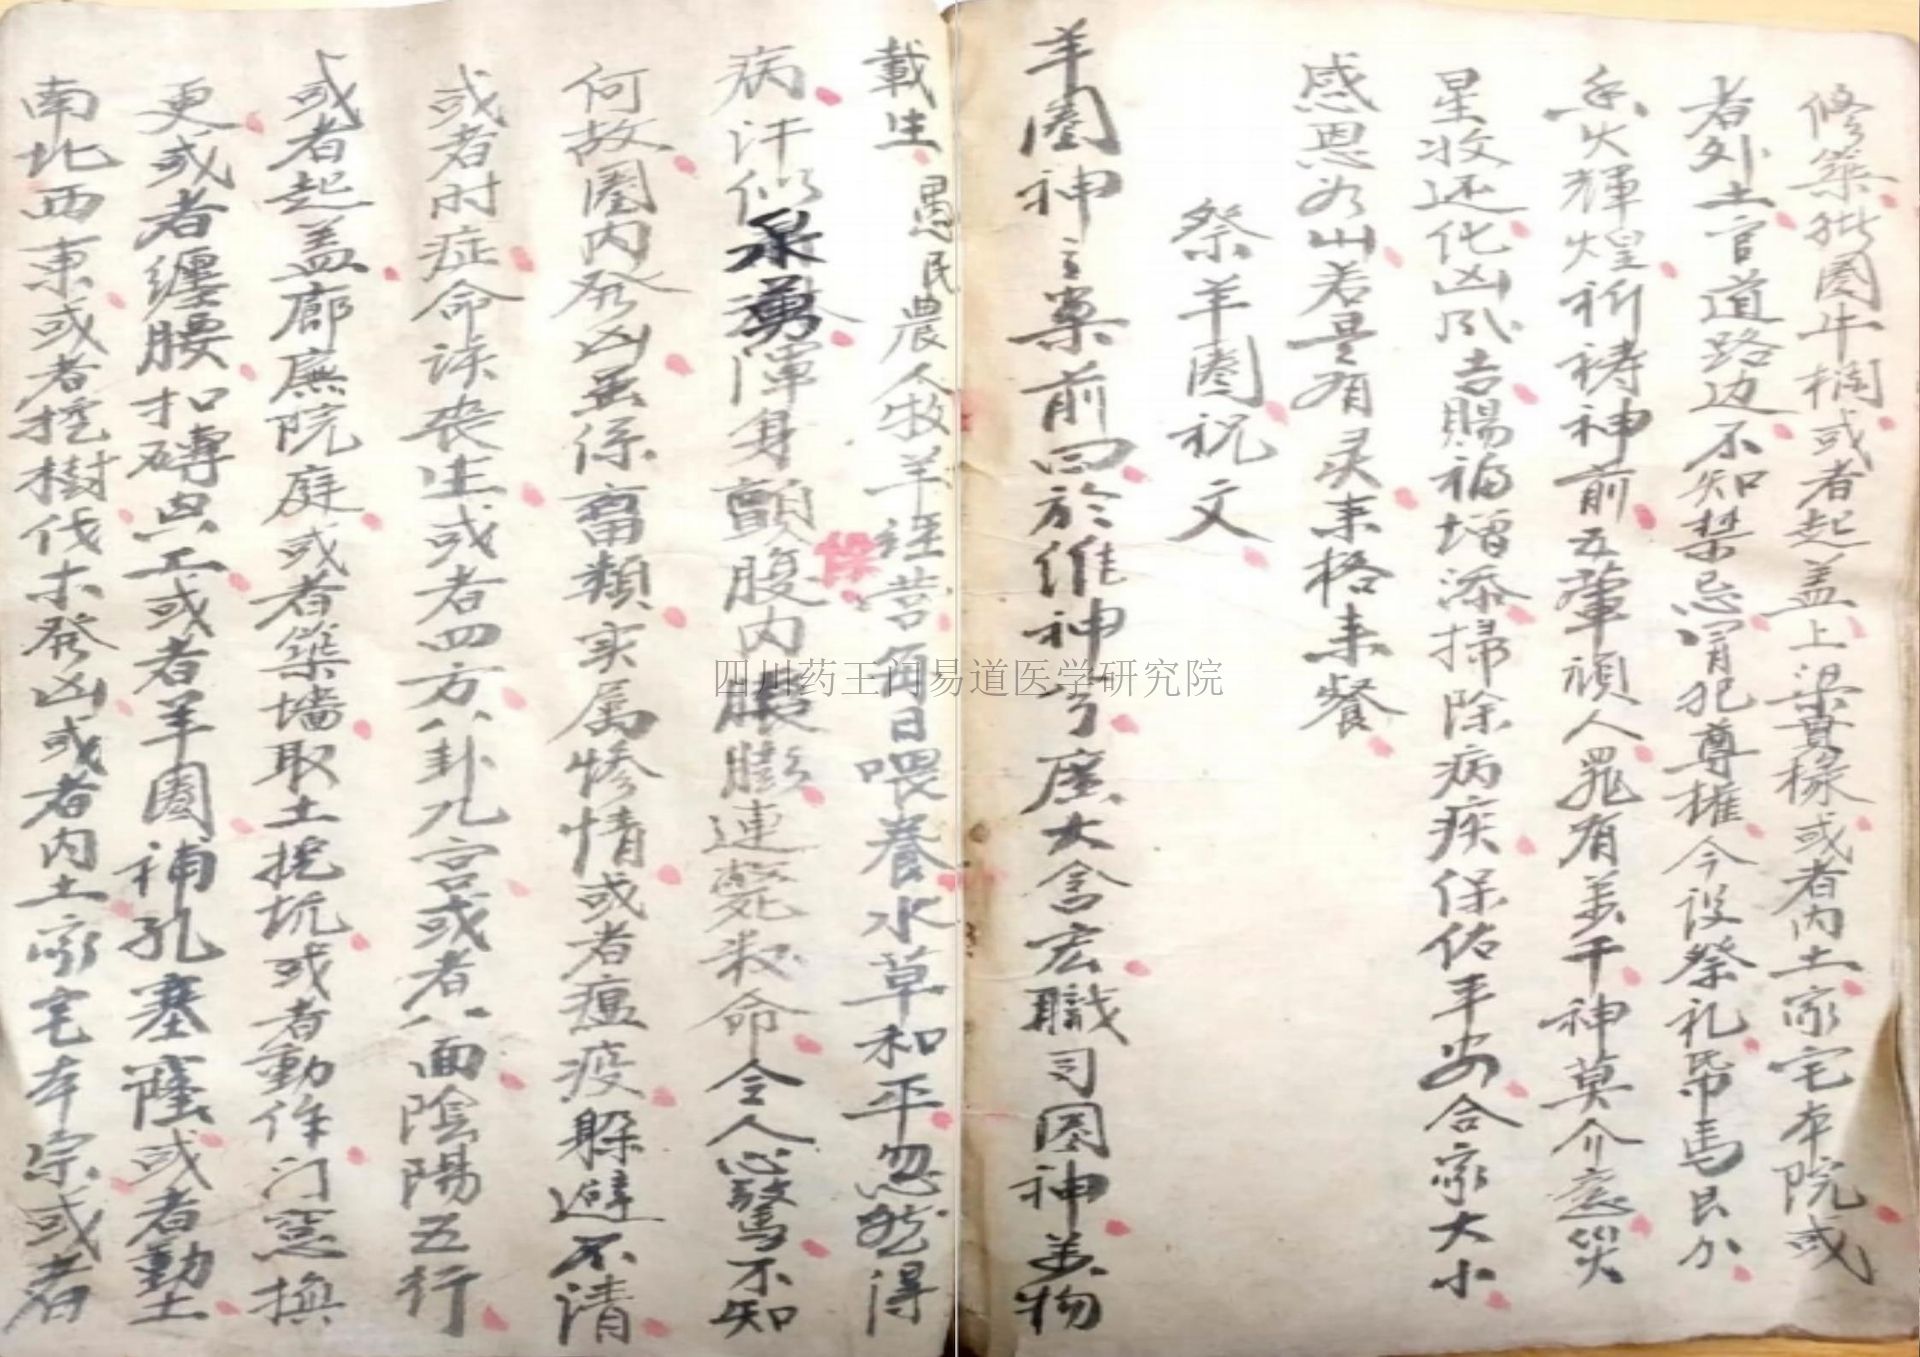 修築猪圏牛棚或者起盖上梁奠椽或者内土家宅本院或
者外土官道路边不知禁忌冒犯尊權今设祭礼帋馬艮分
香火輝煌祈祷神前互葷頑人罪有萬千神莫介意災
星收还化凶风吉賜福增添掃除病疾保佑平安合家大小
感恩如山若是有灵来格来餐
祭羊圈祝文
羊圈神之案前曰於维神兮廣大含宏職司圈神萬物
載生愚民農人牧羊經营角日喂養水草和平忽然得
保
病汗似泉湧渾身顫腹内脹膨連斃数命令人心驚不知
何故圏内發凶虽係畜類实属惨情或者瘟疫躲避不清
或者时症命该丧生或者四方八卦九宫或者八面陰陽五行
或者起盖廊廡院庭或者築墙取土挖坑或者動作门窓換
更或者纏腰扣磚興工或者羊圈補孔塞窿或者動土
南北西東或者挖樹伐木發凶或者内土家宅本宗或者
四川药王门易道医学研究院